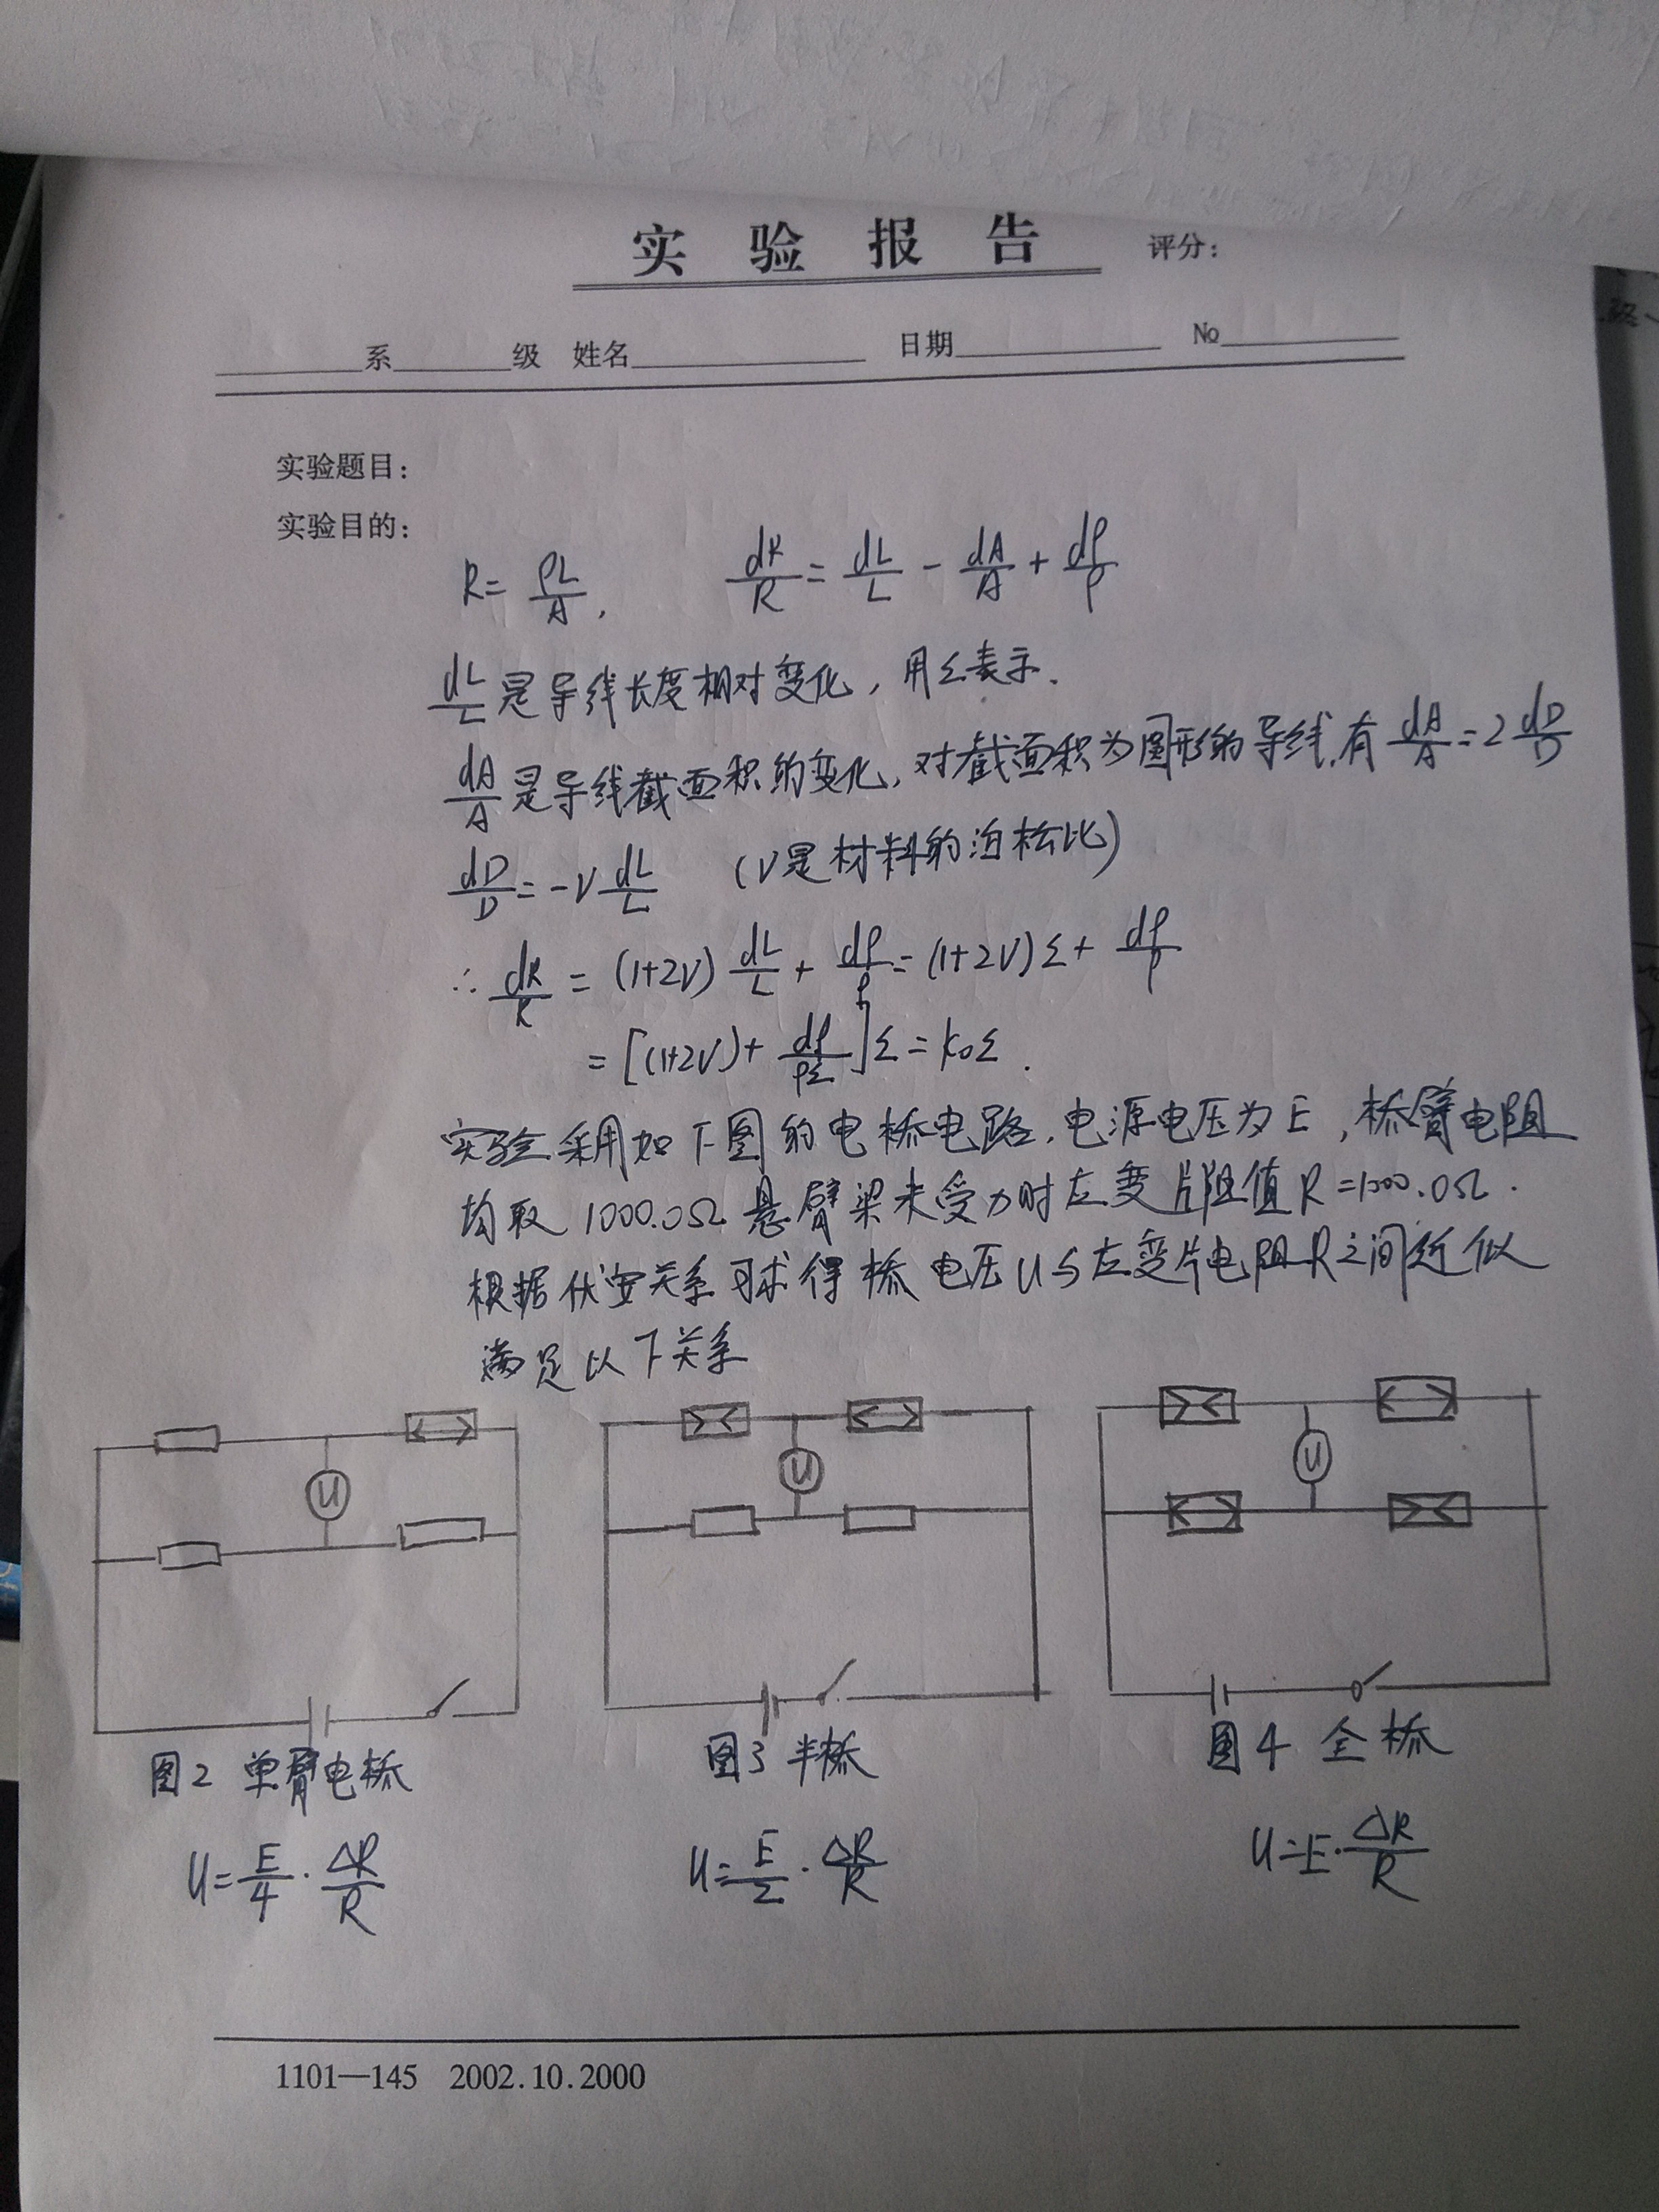 实 验 报 告 评分:
系 级 姓名 日期 No
实验题目:
实验目的:
R = ρL/A, dR/R = dL/L - dA/A + dρ/ρ
dL/L 是导线长度相对变化, 用Σ表示.
dA/A 是导线截面积的变化, 对截面积为圆形的导线, 有 dA/A = 2 dD/D
dD/D = -ν dL/L (ν是材料的泊松比)
∴ dR/R = (1+2ν) dL/L + dρ/ρ = (1+2ν)Σ + dρ/ρ
= [(1+2ν) + dρ/ρΣ]Σ = K₀Σ.
实验采用如下图的电桥电路, 电源电压为E, 桥臂电阻
均取 1000.0Ω 悬臂梁未受力时应变片阻值 R = 1000.0Ω.
根据伏安关系可求得桥电压U与应变片电阻R之间近似
满足以下关系
U U U
图2 单臂电桥 图3 半桥 图4 全桥
U = E/4 · ΔR/R U = E/2 · ΔR/R U = E · ΔR/R
1101—145 2002.10.2000